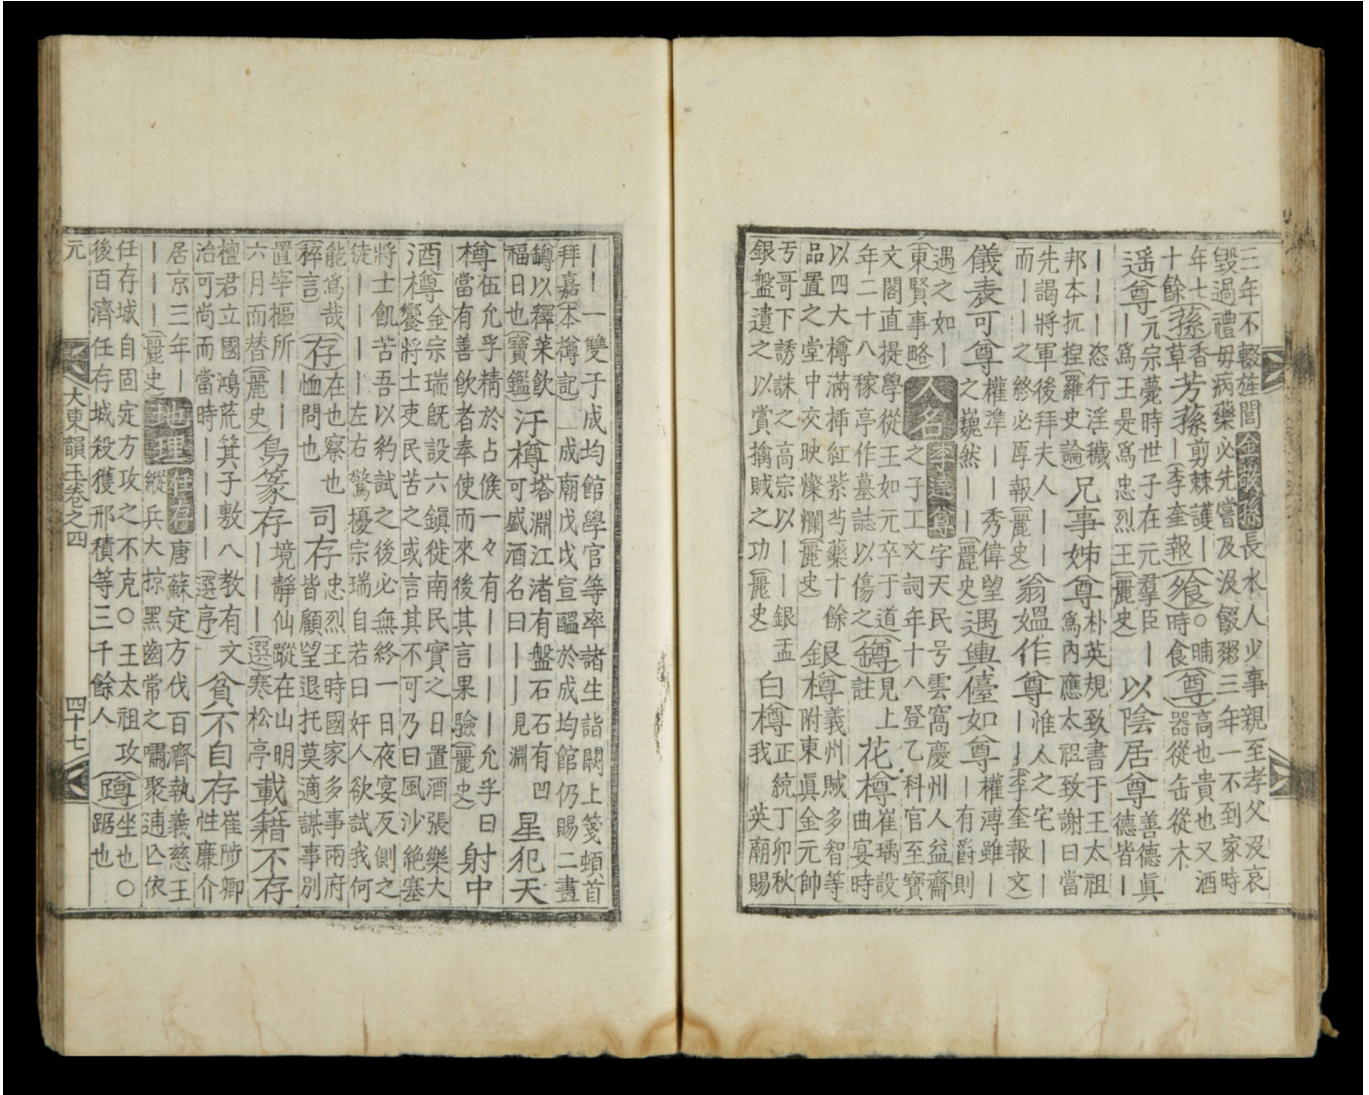 三年不輟旌閭金敬孫長水人少事親至孝父沒哀
毀過禮毋病藥必先嘗及沒餟粥三年一不到家時
年七十餘(蓀)香草芳蓀剪棘護｜｜(李奎報)(飱)○晡時食(尊)高也貴也又酒器從缶從木
遥尊元宗薨時世子在元羣臣｜｜爲王是爲忠烈王(麗史)以陰居尊善德眞德皆｜
｜｜｜恣行淫穢邦本扤揑(羅史論)兄事姊尊朴英規致書于王太祖爲內應太祖致謝曰當
先謁將軍後拜夫人｜｜而｜｜之終必厚報(麗史)翁媪作尊惟人之宅｜｜｜｜(李奎報文)
儀表可尊權準｜｜秀偉望之巍然｜｜(麗史)遇輿儓如尊權溥雖｜｜有爵則
遇之如｜(東賢事略)人名李達尊字天民号雲窩慶州人益齋之子工文詞年十八登乙科官至寶
文閣直提學從王如元卒于道年二十八稼亭作墓誌以傷之(罇)見上註花樽崔瑀設曲宴時
以四大樽滿揷紅紫芍藥十餘品置之堂中交映燦爛(麗史)銀樽義州賊多智等附東眞金元帥
丐哥下誘誅之高宗以｜｜銀盂銀盤遺之以賞擒賊之功(麗史)白樽正統丁卯秋我 英廟賜
｜｜一雙于成均館學官等率諸生詣闕上箋頓首
拜嘉(本樽記)｜成廟戊戌宣醞於成均館仍賜二畫
罇以釋菜飲福日也(寶鑑)汙樽塔淵江渚有盤石石有凹可盛酒名曰｜｜見淵星犯天
樽伍允孚精於占候一々有｜｜｜｜允孚曰當有善飮者奉使而來後其言果驗(麗史)射中
酒樽金宗瑞旣設六鎭徙南民實之日置酒張樂大饗將士吏民苦之或言其不可乃曰風沙絶塞
將士飢苦吾以豹試之後必無終一日夜宴反側之
徒｜｜｜｜左右驚擾宗瑞自若曰奸人欲試我何
能爲哉(稗言)(存)在也察也恤問也司存忠烈王時國家多事兩府皆顧望退托莫適謀事別
置宰樞所｜｜｜六月而替(麗史)鳥篆存境靜仙蹤在山明｜｜｜(選)寒松亭載籍不存
檀君立國鴻荒箕子敷八敎有文治可尚而當時｜｜｜｜(選序)貧不自存崔陟卿性廉介
居京三年｜｜｜｜(麗史)地理任存唐蘇定方伐百濟執義慈王縱兵大掠黑齒常之嘯聚逋亡依
任存城自固定方攻之不克○王太祖攻後百濟任存城殺獲邢積等三千餘人(蹲)坐也○踞也
元 大東韻玉卷之四 四十七